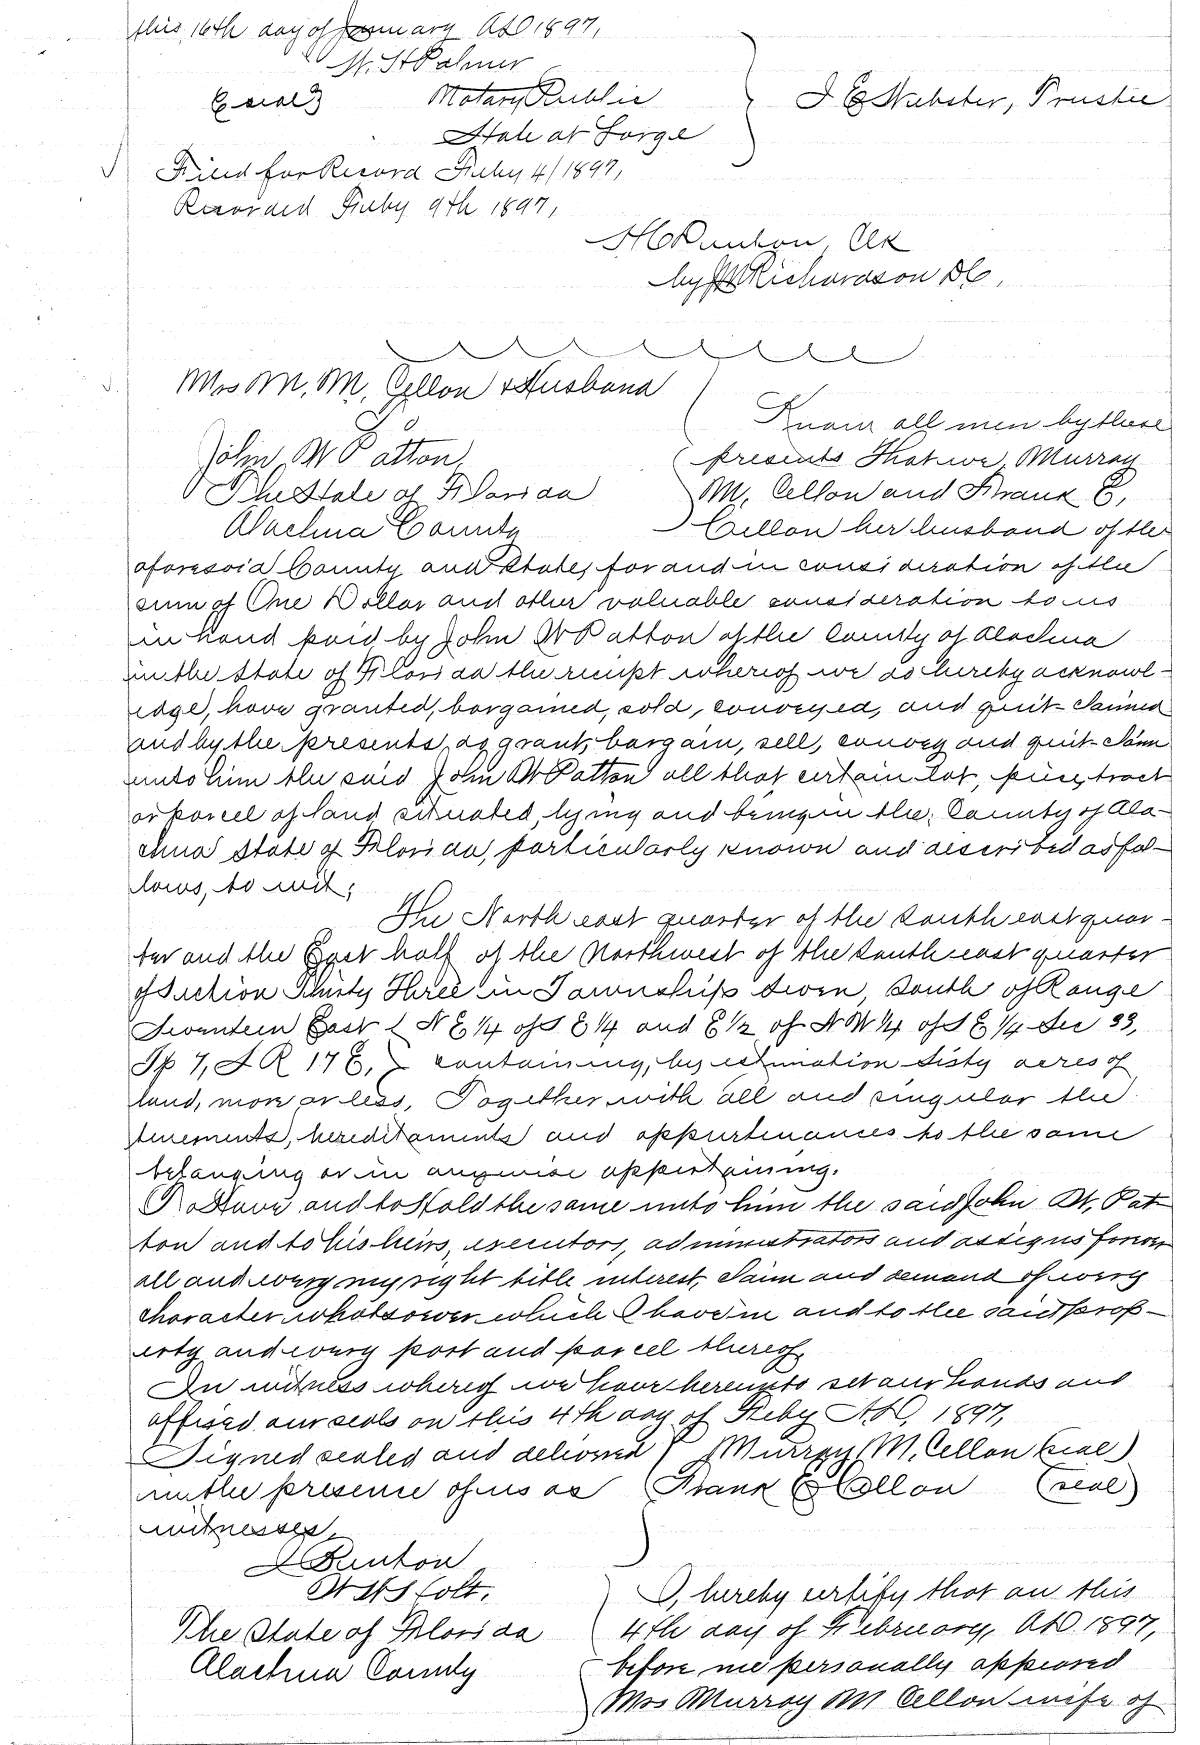 this 16th day of January AD 1897,
W. H Palmer
(seal) Notary Public
State at Large
J E Webster, Trustee
Filed for Record Feby 4/1897,
Recorded Feby 9th 1897,
H C Denton, Clk
by Richardson DC,
Mrs M. M. Cellon & Husband
To
John W Patton
The State of Florida
Alachua County
Know all men by these
presents That we, Murray
M, Cellon and Frank E,
Cellon her husband of the
aforesaid County and State, for and in consideration of the
sum of One Dollar and other valuable consideration to us
in hand paid by John W Patton of the County of Alachua
in the State of Florida the reciept whereof we do hereby acknowl-
edge, have granted, bargained, sold, conveyed, and quit-claimed
and by the presents do grant, bargain, sell, convey and quit-claim
unto him the said John W Patton all that certain lot, piece, tract
or parcel of land situated, lying and being in the, County of Ala-
chua State of Florida, particularly known and described as fol-
lows, to wit;
The North east quarter of the South east quar-
ter and the East half of the Northwest of the South east quarter
of Section Thirty Three in Township Seven, South of Range
Seventeen East (N E ¼ of S E ¼ and E ½ of N W ¼ of S E ¼ Sec 33,
Tp 7, S R 17 E,) containing, by estimation Sixty acres of
land, more or less, Together with all and singular the
tenements, hereditaments and appurtenances to the same
belonging or in anywise appertaining.
To Have and to Hold the same unto him the said John W, Pat-
ton and to his heirs, executors, administrators and assigns forever
all and every my right title interest, claim and demand of every
character whatsoever which I have in and to the said prop-
erty and every part and parcel thereof,
In witness whereof we have hereunto set our hands and
affixed our seals on this 4th day of Feby AD, 1897,
Signed sealed and delivered Murray M. Cellon (seal)
in the presence of us as Frank E Cellon (seal)
witnesses,
Denton
W H Colt.
The State of Florida
Alachua County
I, hereby certify that on this
4th day of February, AD 1897,
before me personally appeared
Mrs Murray M Cellon wife of